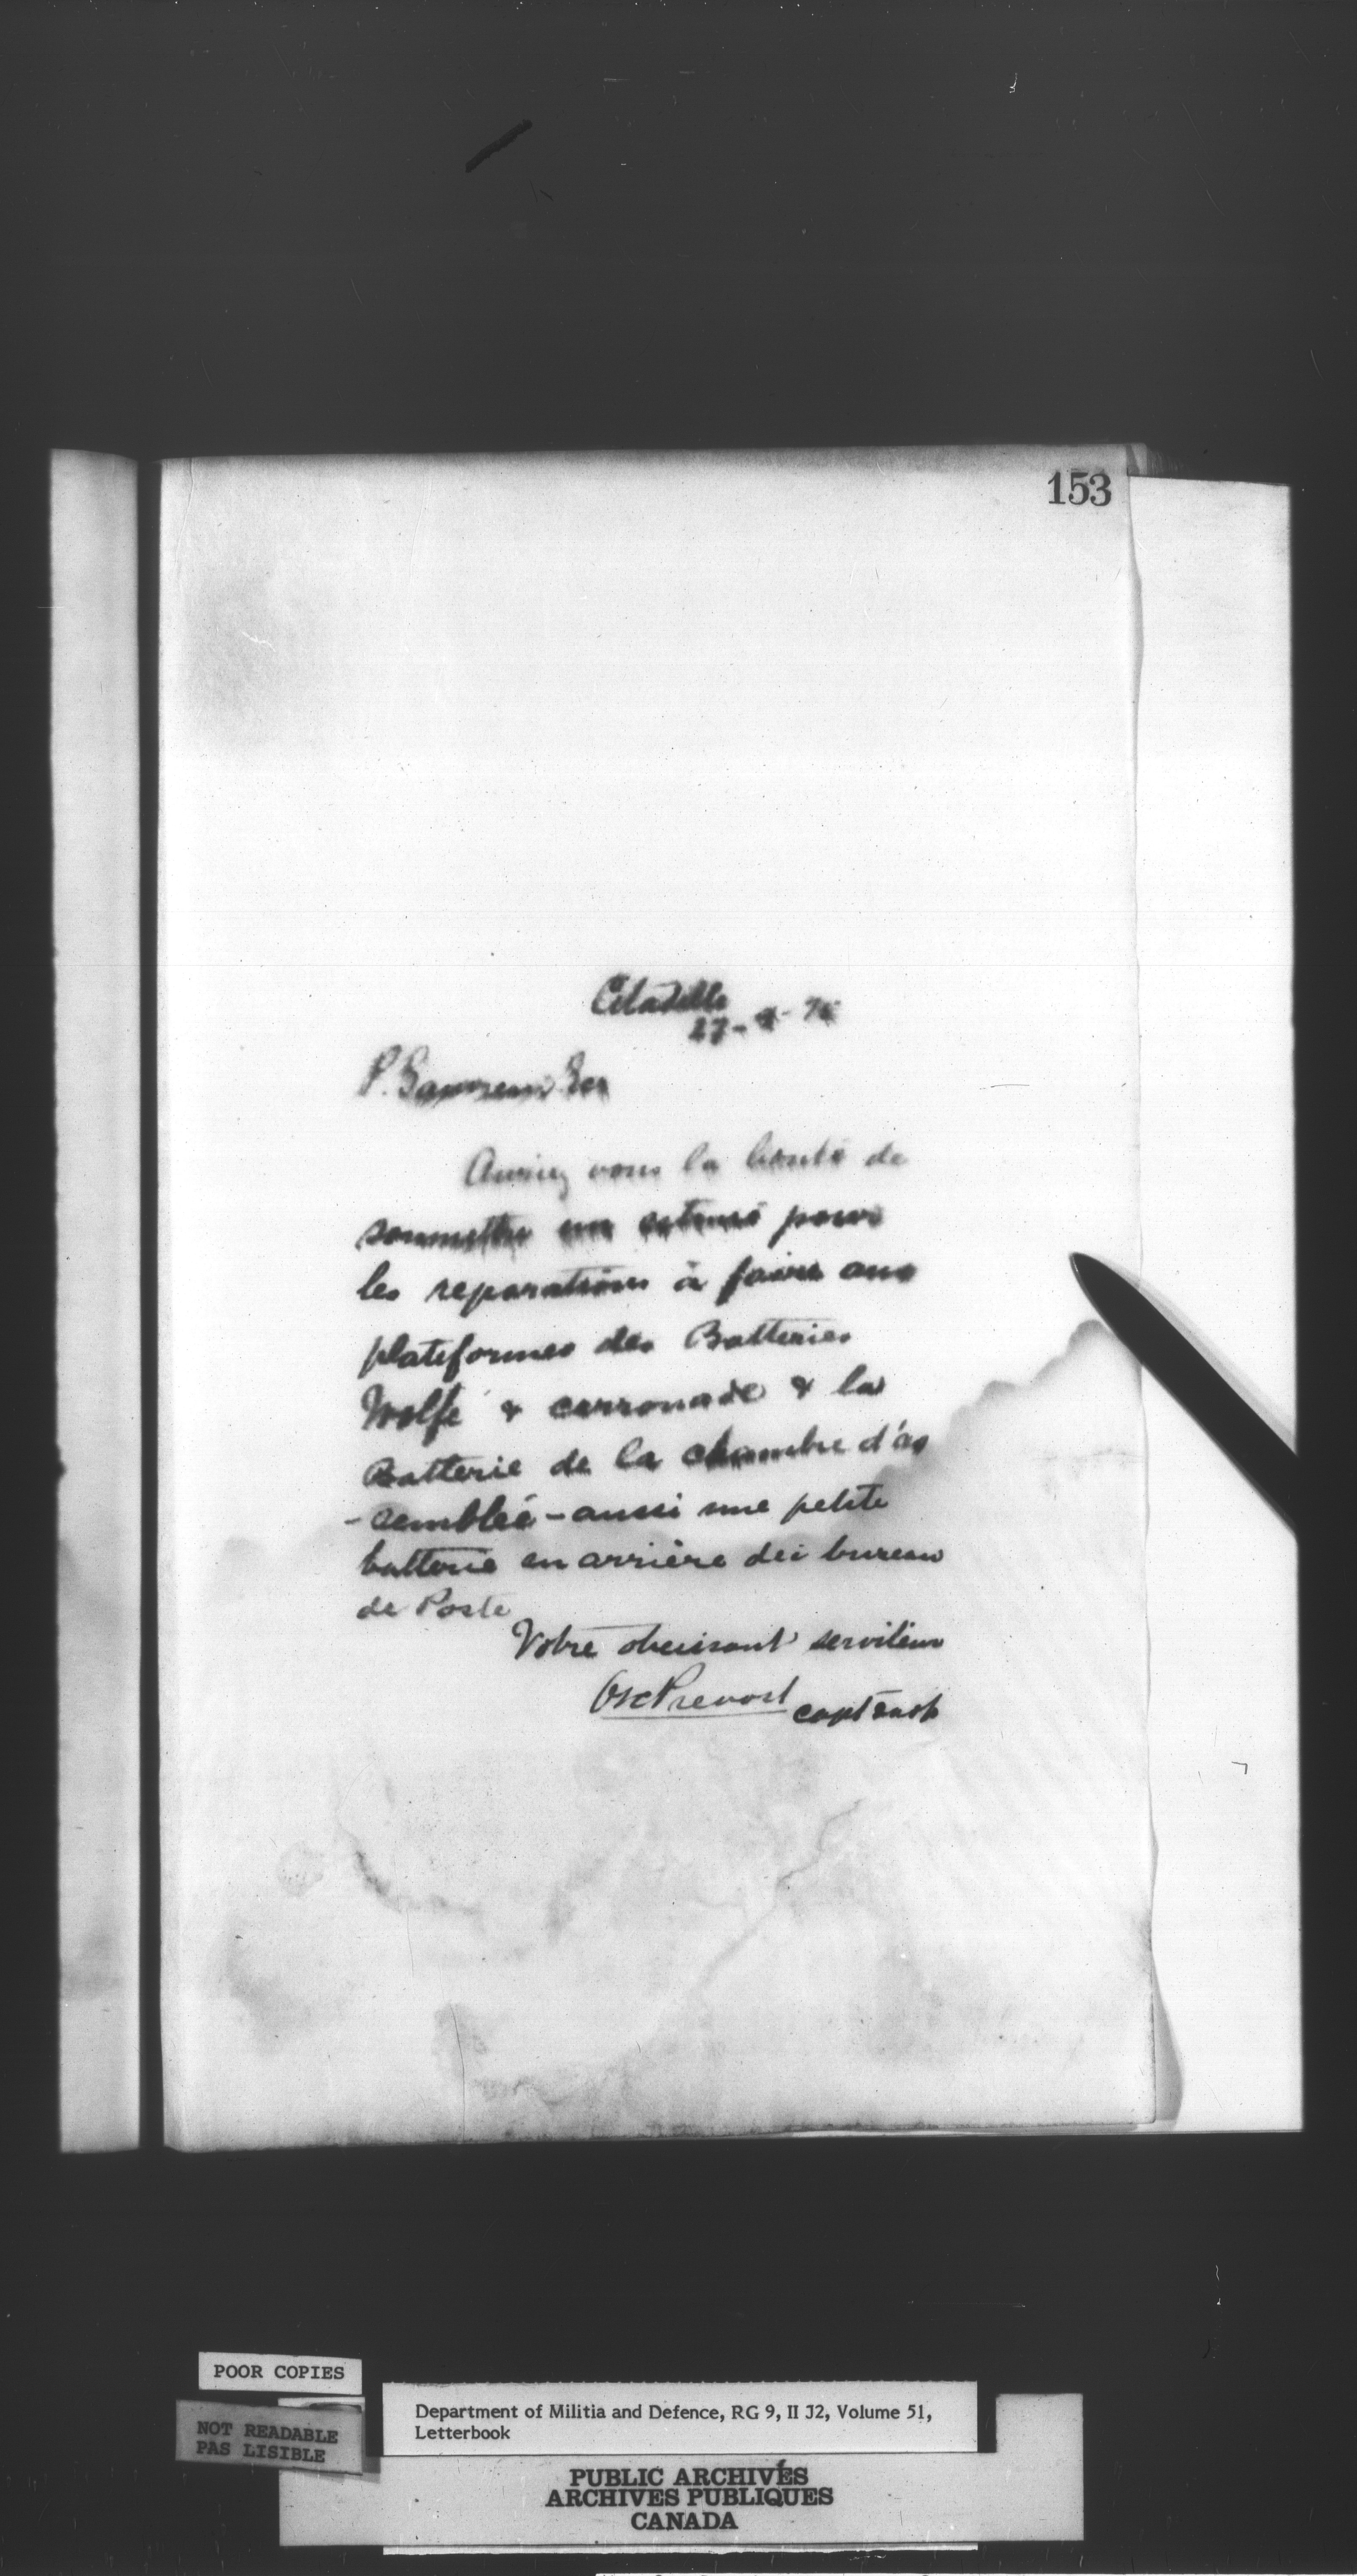 153
Citadelle
27-
P.
Auriez vous la bonté de
soumettre un estimé pour
les reparations à faire aux
plateformes des Batteries
Wolfe & carronade & la
Batterie de la chambre d'as
-semblée - aussi une petite
batterie en arrière du bureau
de Poste
Votre obeissant serviteur
Osc Prevost capt
POOR COPIES
NOT READABLE
PAS LISIBLE
Department of Militia and Defence, RG 9, II J2, Volume 51,
Letterbook
PUBLIC ARCHIVES
ARCHIVES PUBLIQUES
CANADA